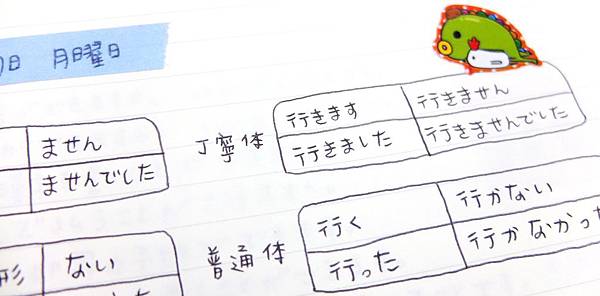 日 月曜日
丁寧体
ません
ませんでした
行きます 行きません
行きました 行きませんでした
普通体
形 ない
行く 行かない
行った 行かなかっ